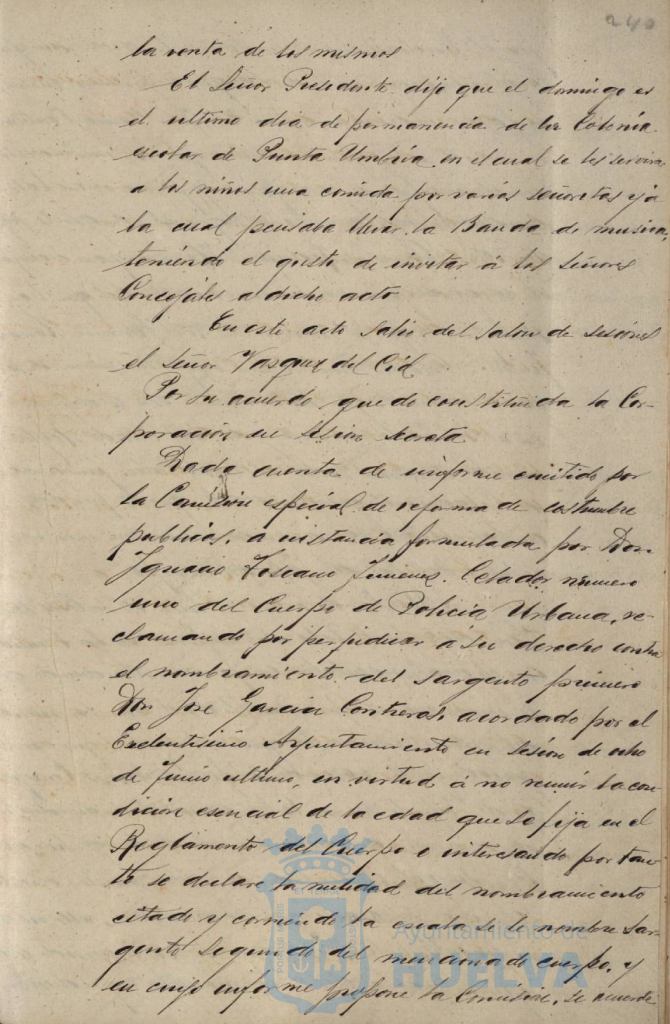 240
la venta de los mismos
El Señor Presidente dijo que el domingo es
el ultimo dia de permanencia de la Colonia
escolar de Punta Umbria en el cual se les servira
a los niños una comida por varias señoritas y á
la cual pensaba llevar la Banda de musica,
teniendo el gusto de invitar á los Señores
Concejales a dicho acto
En este acto salio del salon de sesiones
el Señor Vazquez del Cid.
Por su acuerdo quedo constituida la Cor-
poración en sesion secreta
Dada cuenta de informe emitido por
la Comision especial de reforma de costumbre
publicas, a instancia formulada por Don
Ignacio Toscano Jimenez, Celador numero
uno del Cuerpo de Policia Urbana, re-
clamando por perjudicar a su derecho contra
el nombramiento del sargento primero
Don Jose Garcia Contreras, acordado por el
Exelentisimo Ayuntamiento en sesion de ocho
de Junio ultimo, en virtud á no reunir la con-
dicion esencial de la edad que se fija en el
Reglamento del Cuerpo e interesando por tan-
to se declare la nulidad del nombramiento
citado y corriendo la escala se le nombre Sar-
gento segundo del mencionado cuerpo, y
en cuyo informe propone la Comision, se acuerde
Ayuntamiento de
HUELVA